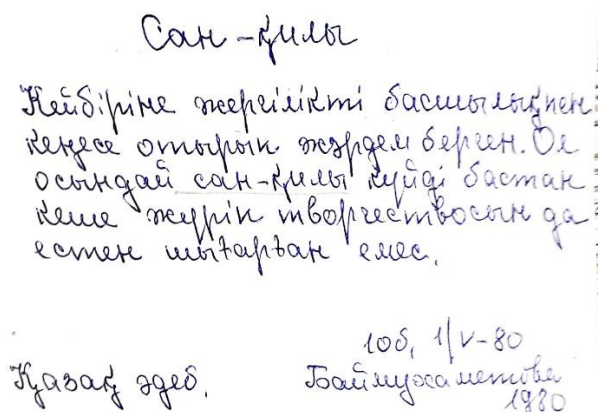 Сан-қилы
Кейбіріне жергілікті басшылықпен
кеңесе отырып жәрдем берген. Ол
осындай сан-қилы күйді бастан
кеше жүріп творчествосын да
естен шығарған емес.
10б, 1/V-80
Қазақ әдеб.
Баймухаметова
1980